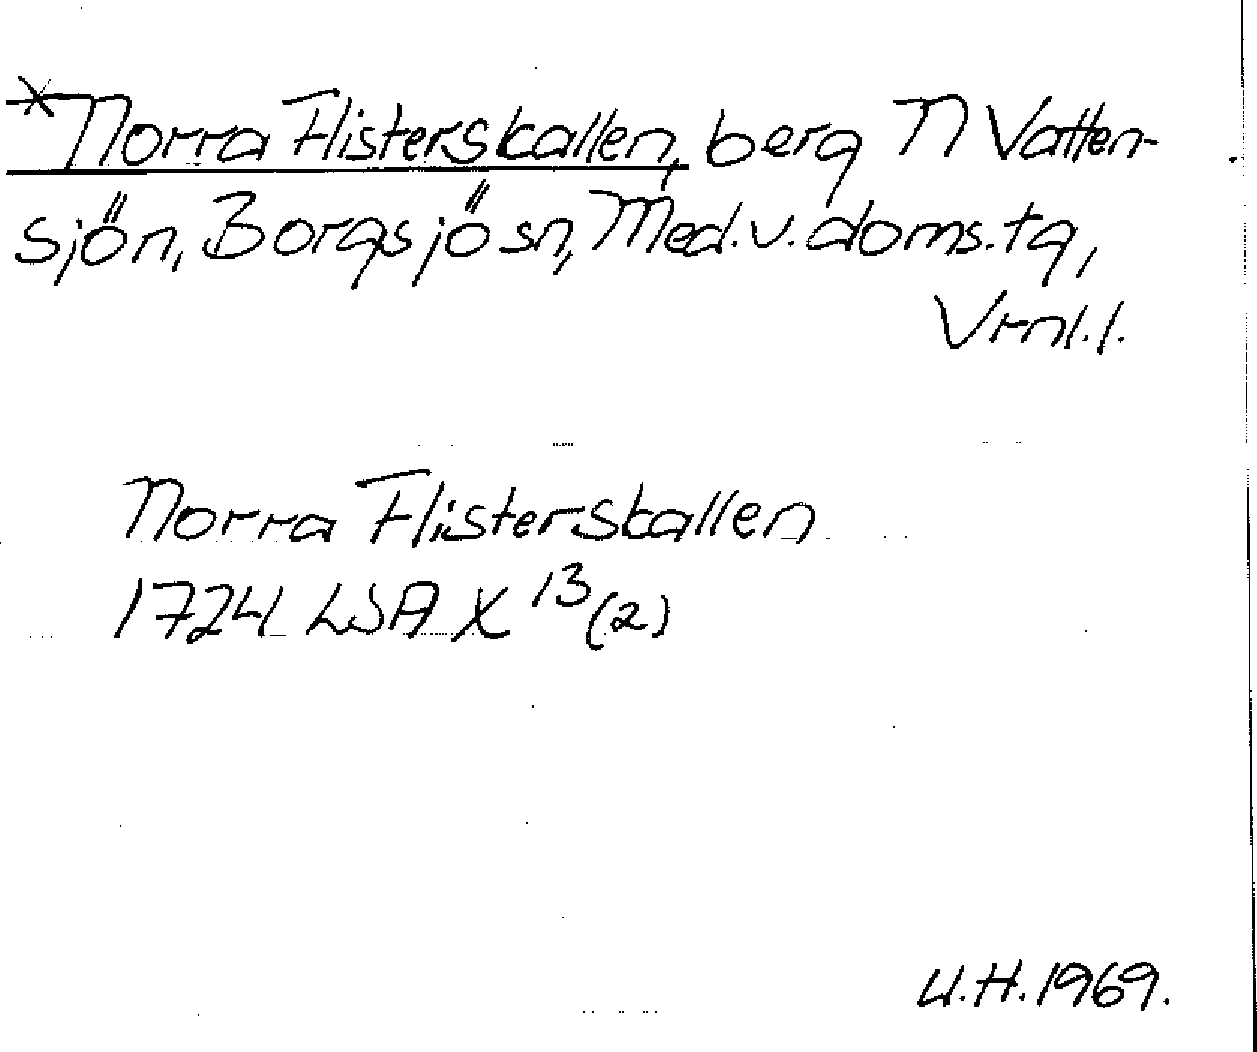 *Norra Flisterskallen, berg N Vatten-
sjön, Borgsjö sn, Med.v.doms.tg,
Vrnl.l.
Norra Flisterskallen
1724 LSA X 13(2)
U.H.1969.